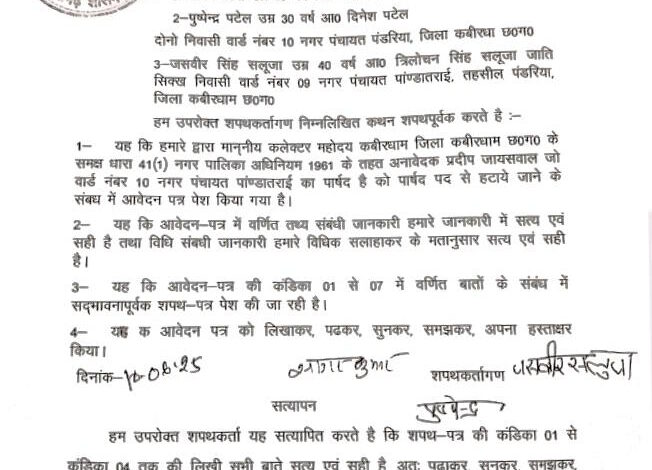 2–पुष्पेन्द्र पटेल उम्र 30 वर्ष आ0 दिनेश पटेल
दोनो निवासी वार्ड नंबर 10 नगर पंचायत पंडरिया, जिला कबीरधा छ0ग0
3–जसवीर सिंह सलूजा उम्र 40 वर्ष आ0 त्रिलोचन सिंह सलूजा जाति
सिक्ख निवासी वार्ड नंबर 09 नगर पंचायत पांण्डातराई, तहसील पंडरिया,
जिला कबीरधाम छ0ग0
हम उपरोक्त शपथकर्तागण निम्नलिखित कथन शपथपूर्वक करते है :–
1– यह कि हमारे द्वारा मान्नीय कलेक्टर महोदय कबीरधाम जिला कबीरधाम छ0ग0 के
समक्ष धारा 41(1) नगर पालिका अधिनियम 1961 के तहत अनावेदक प्रदीप जायसवाल जो
वार्ड नंबर 10 नगर पंचायत पांण्डातराई का पार्षद है को पार्षद पद से हटाये जाने के
संबध में आवेदन पत्र पेश किया गया है।
2– यह कि आवेदन–पत्र में वर्णित तथ्य संबंधी जानकारी हमारे जानकारी में सत्य एवं
सही है तथा विधि संबधी जानकारी हमारे विधिक सलाहाकर के मतानुसार सत्य एवं सही
है।
3– यह कि आवेदन–पत्र की कंडिका 01 से 07 में वर्णित बातों के संबंध में
सद्भावनापूर्वक शपथ–पत्र पेश की जा रही है।
4– यह क आवेदन पत्र को लिखाकर, पढकर, सुनकर, समझकर, अपना हस्ताक्षर
किया।
दिनांक– शपथकर्तागण जसवीर सलुजा
सत्यापन पुष्पेन्द्र
हम उपरोक्त शपथकर्ता यह सत्यापित करते है कि शपथ–पत्र की कंडिका 01 से
कंडिका 04 तक की लिखी सभी बाते सत्य एवं सही है अतः पढाकर, सुनकर, समझकर,